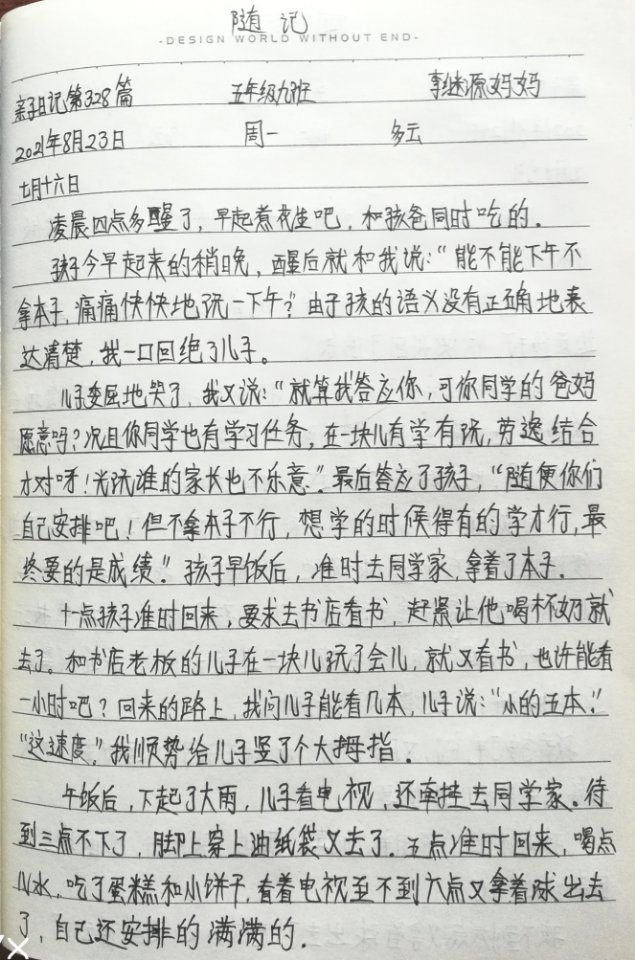 随记
-DESIGN WORLD WITHOUT END-
亲子日记第328篇 五年级九班 李继源妈妈
2021年8月23日 周一 多云
七月十六日
凌晨四点多醒了，早起煮花生吧，和孩爸同时吃的。
孩子今早起来的稍晚，醒后就和我说：“能不能下午不
拿本子，痛痛快快地玩一下午？由于孩的语义没有正确地表
达清楚，我一口回绝了儿子。
儿子委屈地哭了，我又说：“就算我答应你，可你同学的爸妈
愿意吗？况且你同学也有学习任务，在一块儿有学有玩，劳逸结合
才对呀！光玩谁的家长也不乐意”。最后答应了孩子，“随便你们
自己安排吧！但不拿本子不行，想学的时候得有的学才行，最
终要的是成绩”。孩子早饭后，准时去同学家，拿着了本子。
十点孩子准时回来，要求去书店看书，赶紧让他喝杯奶就
去了。和书店老板的儿子在一块儿玩了会儿，就又看书，也许能看
一小时吧？回来的路上，我问儿子能看几本，儿子说：“小的五本”。
“这速度”，我顺势给儿子竖了个大拇指。
午饭后，下起了大雨，儿子看电视，还牵挂去同学家。待
到三点不下了，脚上穿上油纸袋又去了。五点准时回来，喝点
儿水，吃了蛋糕和小饼干，看着电视至不到六点又拿着球出去
了，自己还安排的满满的。